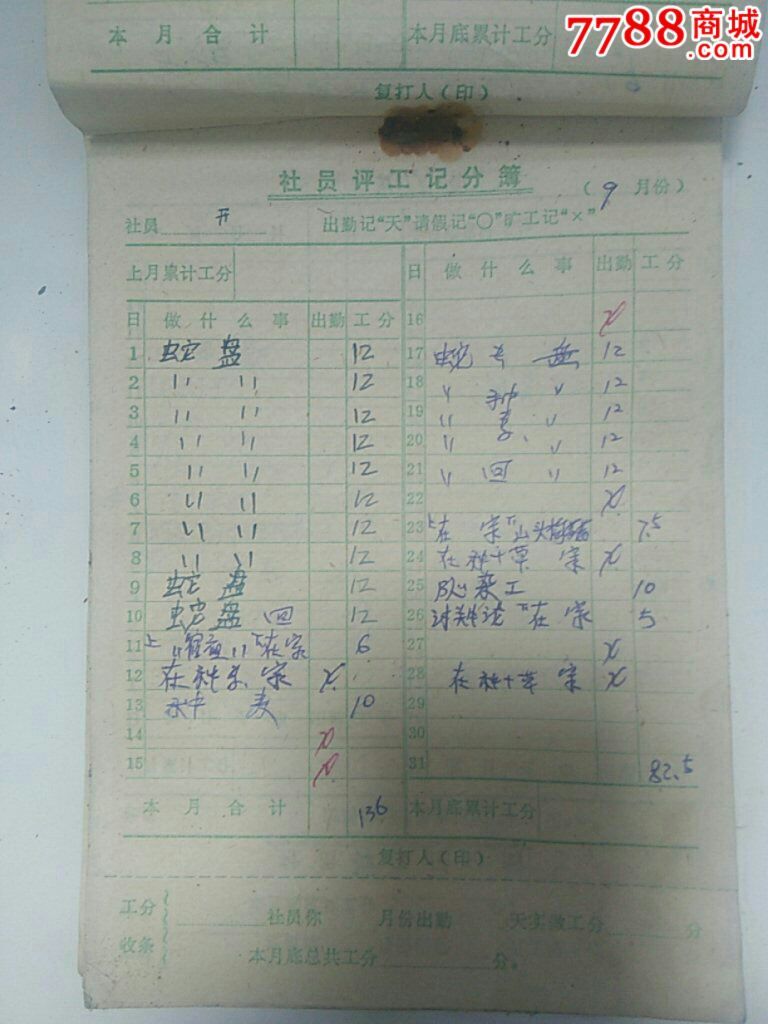 7788商城
.com
本月合计 本月底累计工分
复打人(印)
社员评工记分簿
(9月份)
社员 开 出勤记“天”请假记“○”旷工记“×”
上月累计工分
日 做什么事 出勤 工分
1 蛇盘 12
2 〃 〃 12
3 〃 〃 12
4 〃 〃 12
5 〃 〃 12
6 〃 〃 12
7 〃 〃 12
8 〃 〃 12
9 蛇盘 12
10 蛇盘 回 12
11 上 〃 〃 下在家 6
12 在 家 ×
13 麦 10
14 ×
15 ×
本月合计 136
日 做什么事 出勤 工分
16 ×
17 蛇 盘 12
18 〃 〃 12
19 〃 〃 12
20 〃 〃 12
21 〃 回 〃 12
22 ×
23 上在家下山头 7.5
24 在 草 家 ×
25 队 工 10
26 讨论 下在家 5
27 ×
28 在 草 家 ×
29
30
31 82.5
本月底累计工分
复打人(印)
工分收条
社员你 月份出勤 天实做工分 分
本月底总共工分 分。